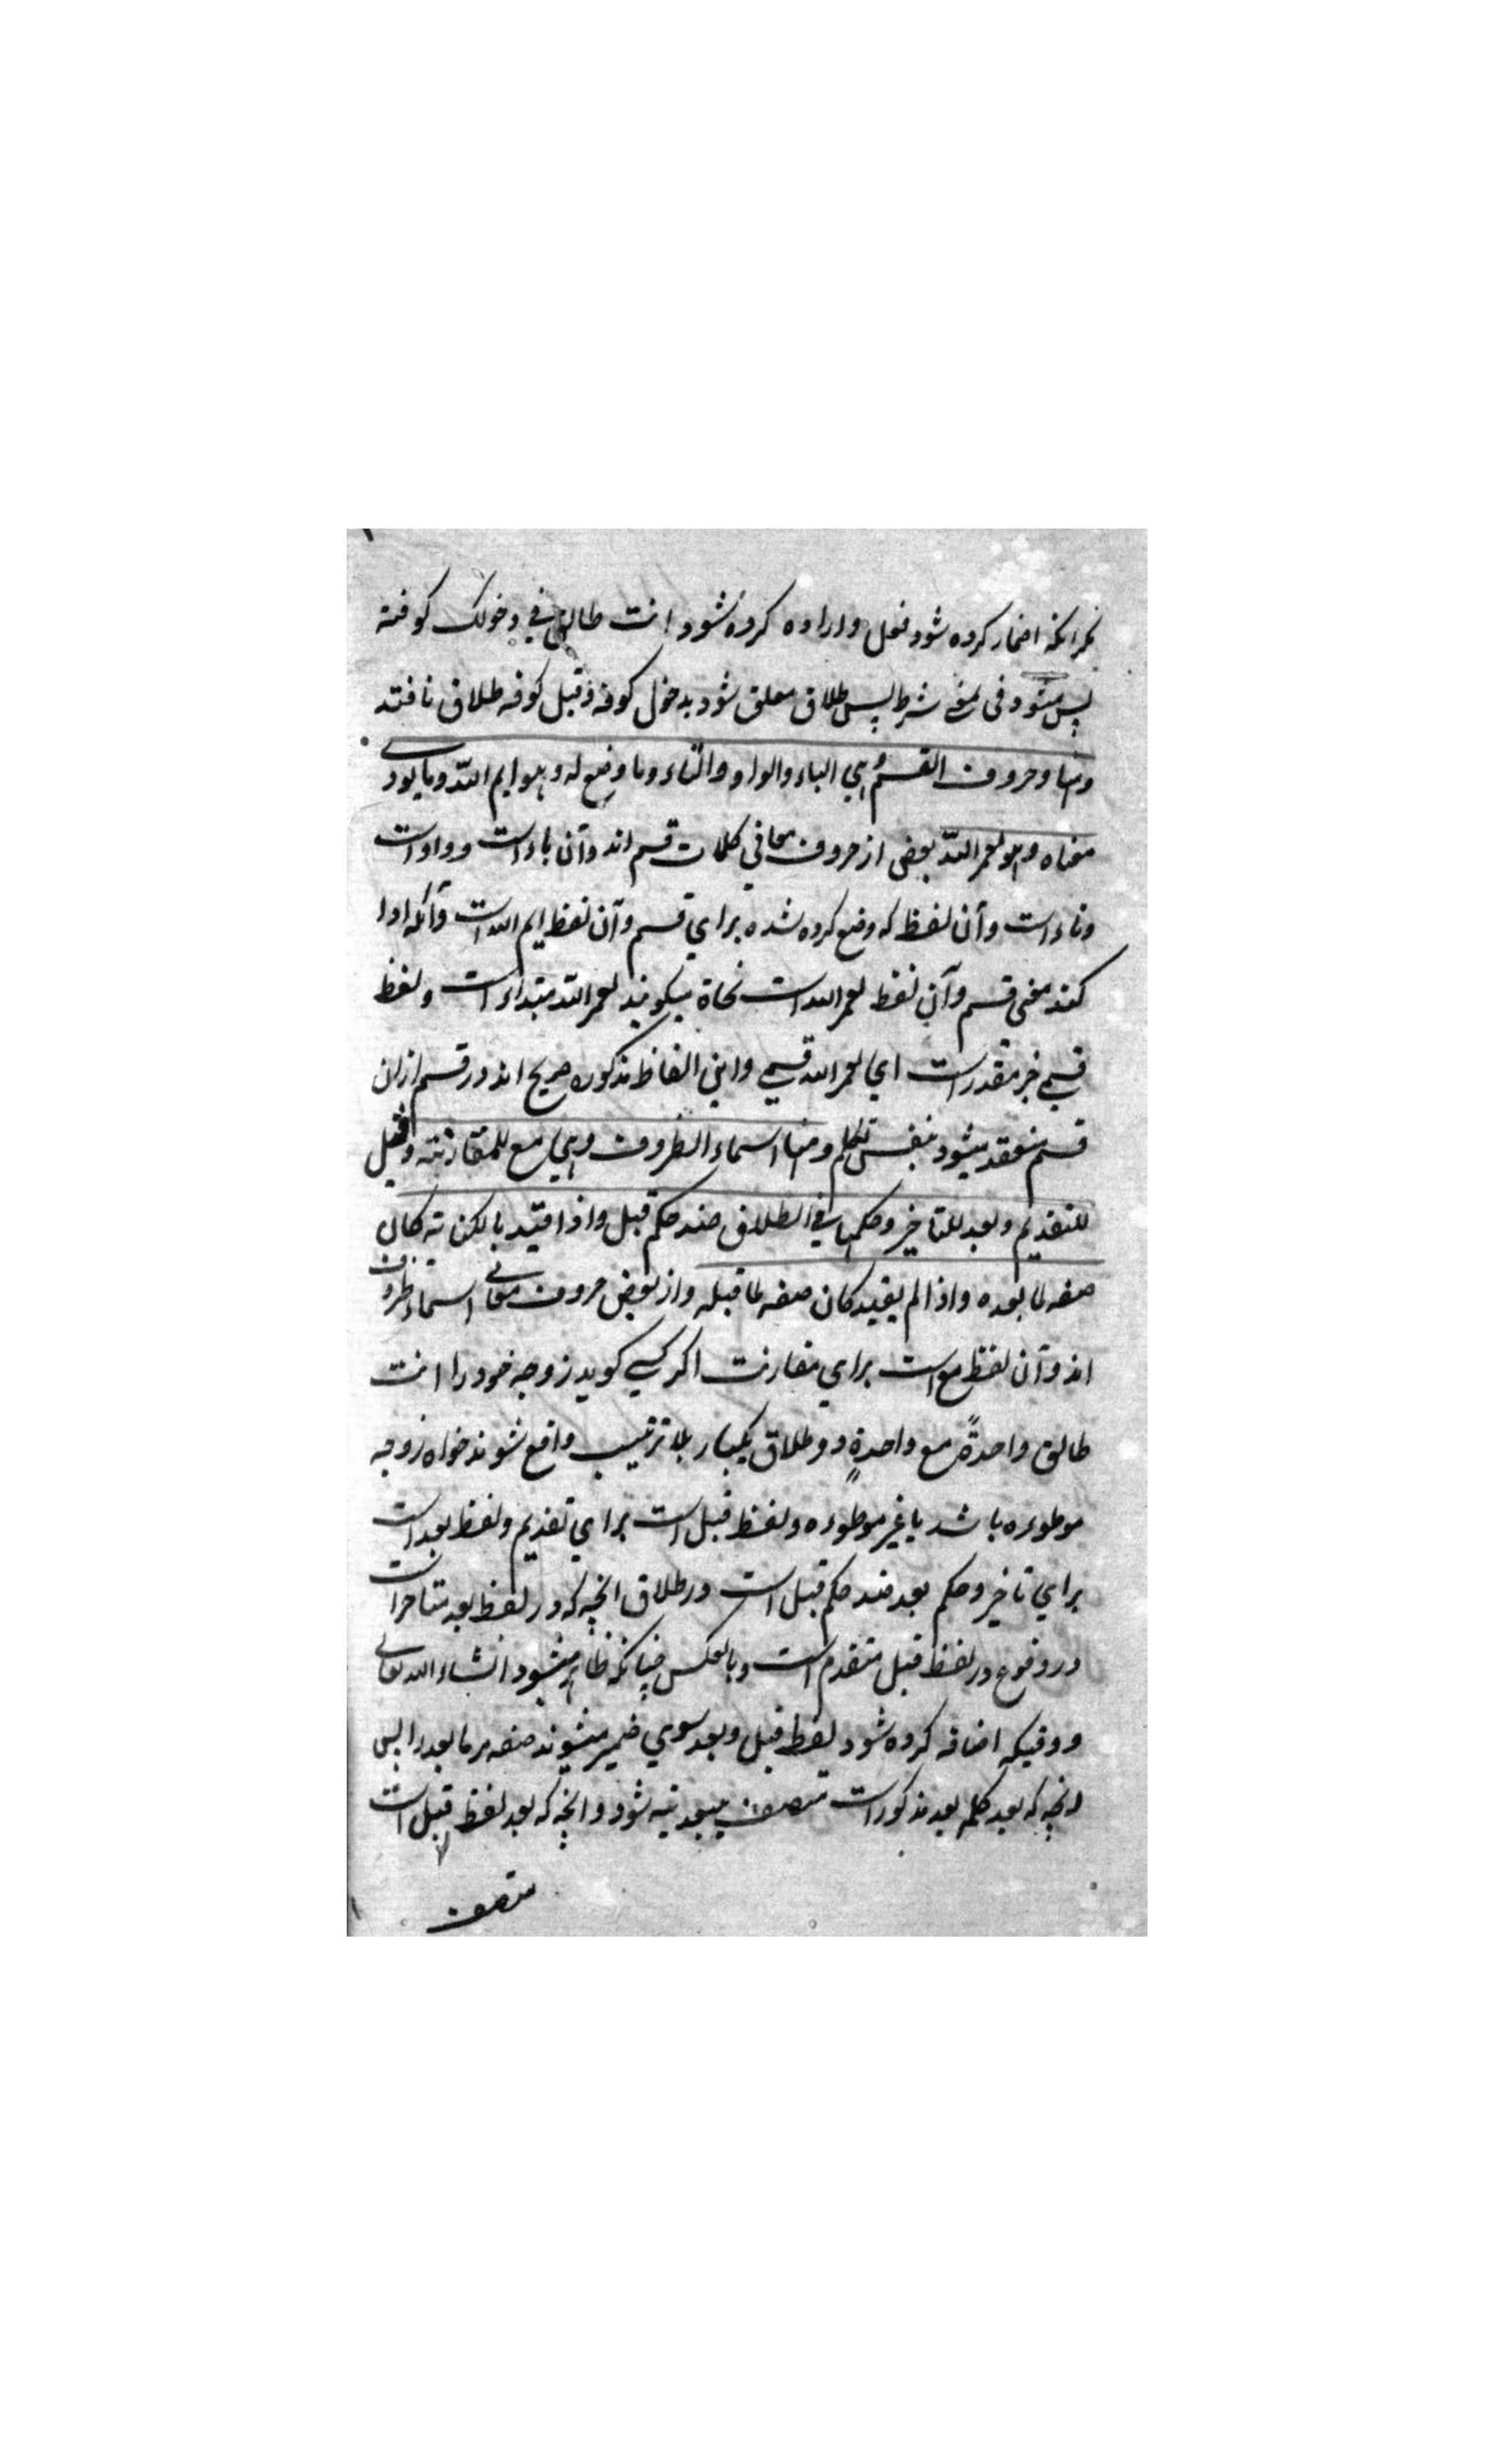 مگر انکه اضمار کرده شود فعل و اراده کرده شود انت طالق في دخولك کوفة
پس میشود فی بمعنے شرط پس طلاق معلق شود بدخول کوفه و قبل کوفه طلاق نافتد
ومنها وحروف القسم وهي الباء والواو والتاء وما وضع له وهو ايم الله وما يودي
معناه وهو لعمر الله بعضی از حروف معاني کلمات قسم اند وآن باء است و واو است
وتاء است وآن لفظ که وضع کرده شده براي قسم وآن لفظ ايم الله است وآنکه ادا
کند معنی قسم وآن لفظ لعمر الله است نحاة میکویند لعمر الله مبتداء است ولفظ
قسمي خبر مقدر است اي لعمر الله قسمي واین الفاظ مذکوره صریح اند در قسم ازان
قسم منعقد میشود بنفس تکلم ومنها اسماء الظروف وهي مع للمقارنة وقبل
للتقديم وبعد للتاخير وحكمها في الطلاق ضد حكم قبل واذا قيد بالكناية كان
صفه لما بعده واذا لم يقيد كان صفه لما قبله واز بعض حروف معانے اسماء ظروف
اند وآن لفظ مع است براي مقارنت اکر کسي کوید زوجه خود را انت
طالق واحدةً مع واحدةٍ دو طلاق یکبار بلا ترتیب واقع شوند خواه زوجه
موطوءه باشد یا غیر موطوءه ولفظ قبل است براي تقدیم ولفظ بعد است
براي تاخیر وحکم بعد ضد حکم قبل است در طلاق انچه که در لفظ بعد متاخر است
در وقوع در لفظ قبل متقدم است وبالعکس چنانکه ظاهر میشود انشاء الله تعالی
و وقتیکه اضافه کرده شود لفظ قبل وبعد سوي ضمیر میشوند صفه مر ما بعد را پس
انچه که بعد کلمه بعد مذکور است متصف ببعدیته شود وانچه که بعد لفظ قبل است
متصف